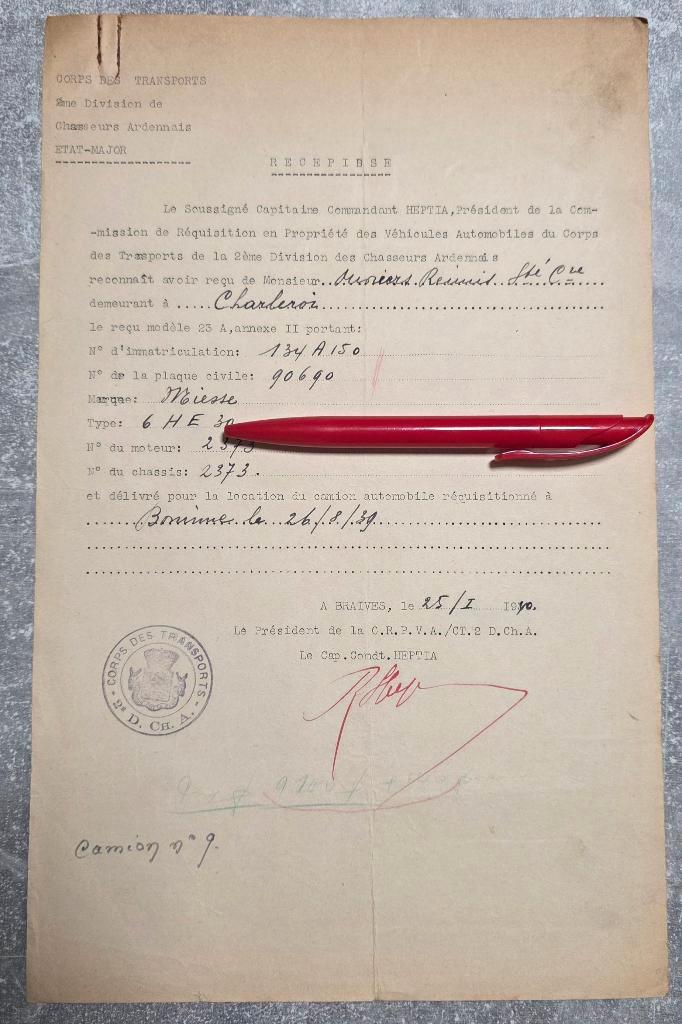 CORPS DES TRANSPORTS
2me Division de
Chasseurs Ardennais
ETAT-MAJOR
RECEPISSE
Le Soussigné Capitaine Commandant HEPTIA,Président de la Com-
-mission de Réquisition en Propriété des Véhicules Automobiles du Corps
des Transports de la 2ème Division des Chasseurs Ardennais
reconnaît avoir reçu de Monsieur...Ouvriers Réunis Sté Cve
demeurant à .....Charleroi
le reçu modèle 23 A,annexe II portant:
N° d'immatriculation: 134 A 150
N° de la plaque civile: 90690
Marque: Miesse
Type: 6 H E 30
N° du moteur: 2373
N° du chassis: 2373.
et délivré pour la location du camion automobile réquisitionné à
le 26/8/39
A BRAIVES, le 25/I 1940.
Le Président de la C.R.P.V.A./CT.2 D.Ch.A.
Le Cap.Comdt.HEPTIA
CORPS DES TRANSPORTS
2e D. CH. A.
Camion n° 9.